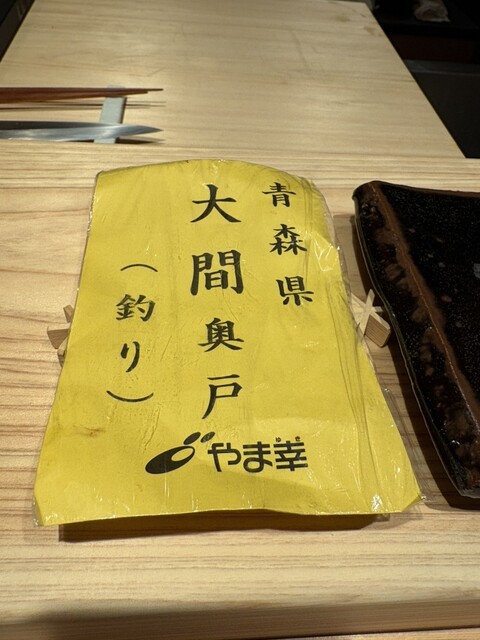 青森県
大間奥戸
（釣り）
やま幸